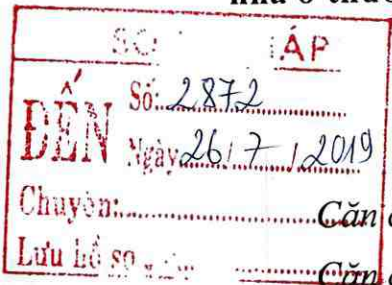 nhà ở
ÁP
ĐẾN
Số: 2872
Ngày 26/7/2019
Chuyển: Căn
Lưu hồ sơ Căn